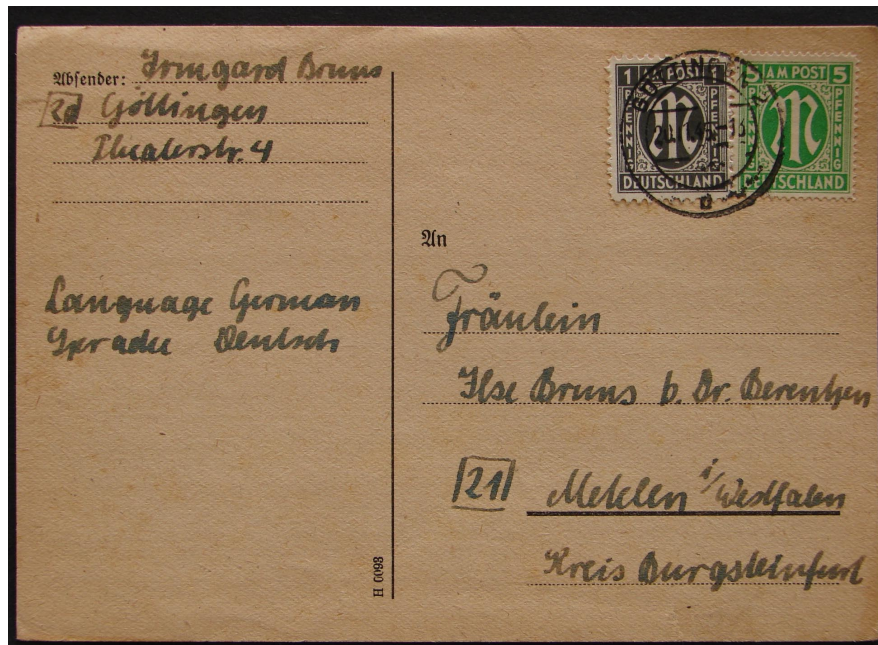 Absender: Irmgard Bruns
2d Göttingen
Theaterstr. 4
Language German
Sprache Deutsch
H 0098
1 AM POST 1
PFENNIG
PFENNIG
DEUTSCHLAND
5 AM POST 5
PFENNIG
PFENNIG
DEUTSCHLAND
GÖTTINGEN
d
An
Fräulein
Ilse Bruns b. Dr. Berentzen
21 Metelen i/Westfalen
Kreis Burgsteinfurt